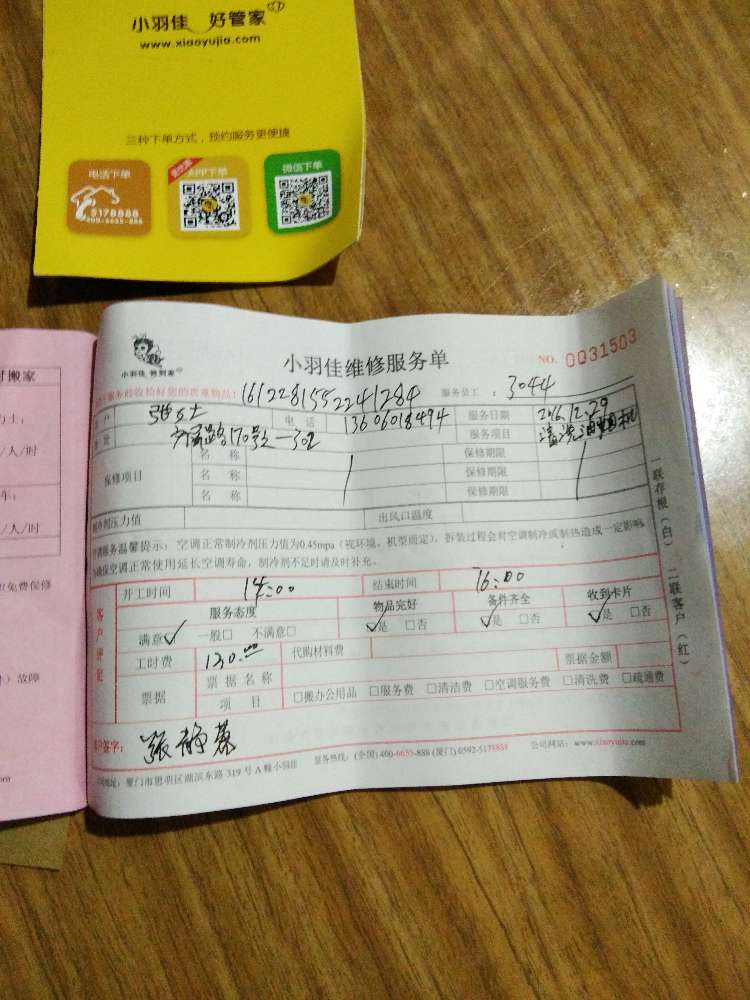 小羽佳 好管家
www.xiaoyujia.com
三种下单方式，预约服务更便捷
电话下单 APP下单 微信下单
5178888
400-6655-888
小羽佳 智到家
小羽佳维修服务单 NO. 0031503
服务前收拾好您的贵重物品: 1612281552241284 服务员工: 3044
户 张女士 电话 13606018494 服务日期 2016.12.29
址 170号之一302 服务项目 清洗油烟机
保修项目 名称 保修期限
名称 保修期限
名称 保修期限
制冷剂压力值 出风口温度
空调服务温馨提示: 空调正常制冷剂压力值为0.45mpa (视环境、机型而定), 拆装过程会对空调制冷或制热造成一定影响,
为确保空调正常使用延长空调寿命, 制冷剂不足时请及时补充。
客户评定 开工时间 14:00 结束时间 16:00
服务态度 物品完好 备件齐全 收到卡片
满意✓ 一般□ 不满意□ ✓是 □否 ✓是 □否 ✓是 □否
工时费 130.00 代购材料费
票据 票据名称 票据金额
项目 □搬办公用品 □服务费 □清洁费 □空调服务费 □清洗费 □疏通费
客户签字: 张静慕
公司地址: 厦门市思明区湖滨东路 319 号 A 幢小羽佳 服务热线: (全国) 400-6655-888 (厦门) 0592-5178888 公司网站: www.xiaoyujia.com
一联存根（白） 二联客户（红）
时搬家
力士:
/人/时
车:
/人/时
免费保修
) 故障
om